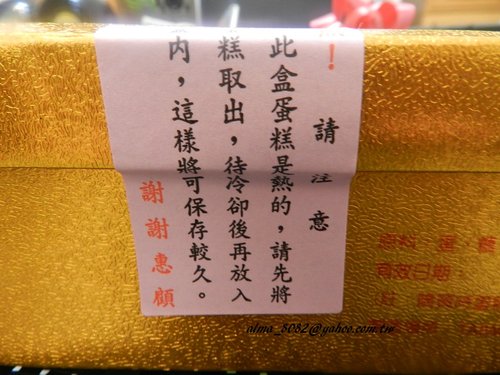 ！請注意
此盒蛋糕是熱的，請先將
糕取出，待冷卻後再放入
內，這樣將可保存較久。
謝謝惠顧
有效日期：
alma_8082@yahoo.com.tw